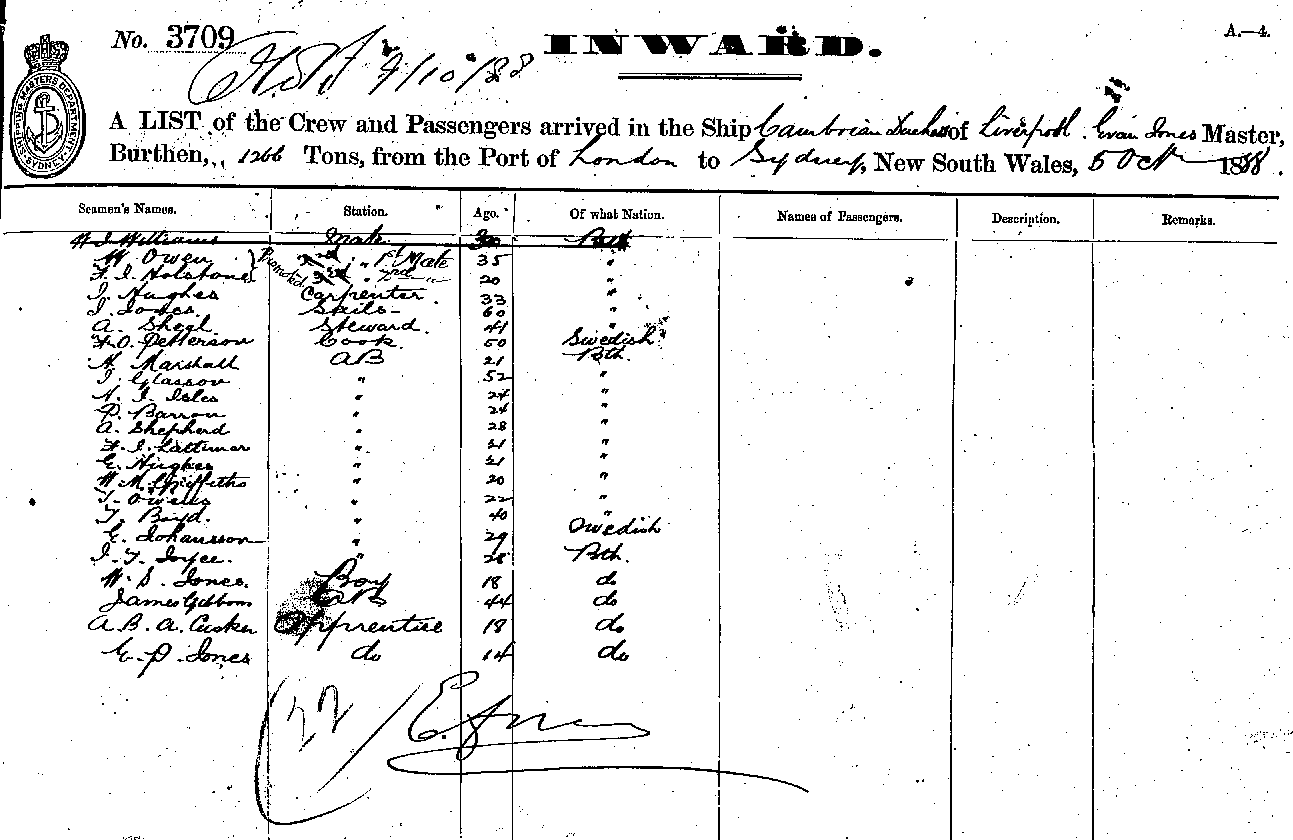 No. 3709
INWARD.
A.—4.
9/10/88
SHIPPING MASTERS DEPARTMENT SYDNEY
A LIST of the Crew and Passengers arrived in the Ship Cambrian Duchess of Liverpool. Evan Jones Master,
Burthen, 1266 Tons, from the Port of London to Sydney, New South Wales, 5 Oct 1888.
Seamen's Names. Station. Age. Of what Nation. Names of Passengers. Description. Remarks.
W J Williams Mate
W. Owen Promoted 2nd " 1st Mate 35 "
3rd " 2nd " 20 "
J. Hughes Carpenter. 33 "
J. Jones Sails 60 "
A. Steward. 41 "
F. O. Petterson Cook. 50 Swedish
H. Marshall AB 21 Bth.
J. Glasson " 52 "
N. J. Isles " 24 "
P. Barron " 24 "
A. Shepherd " 28 "
F. J. Lattimer " 21 "
E. Hughes " 21 "
W. M. Griffiths " 20 "
T. Owens " 22 "
T. Boyd. " 40 "
E. Johansson " 29 Swedish
J. T. Joyce. " 28 Bth.
W. S. Jones. Boy 18 do
James Gibbons AB 44 do
A. B. A. Cusker Apprentice 18 do
E. P. Jones do 14 do
22